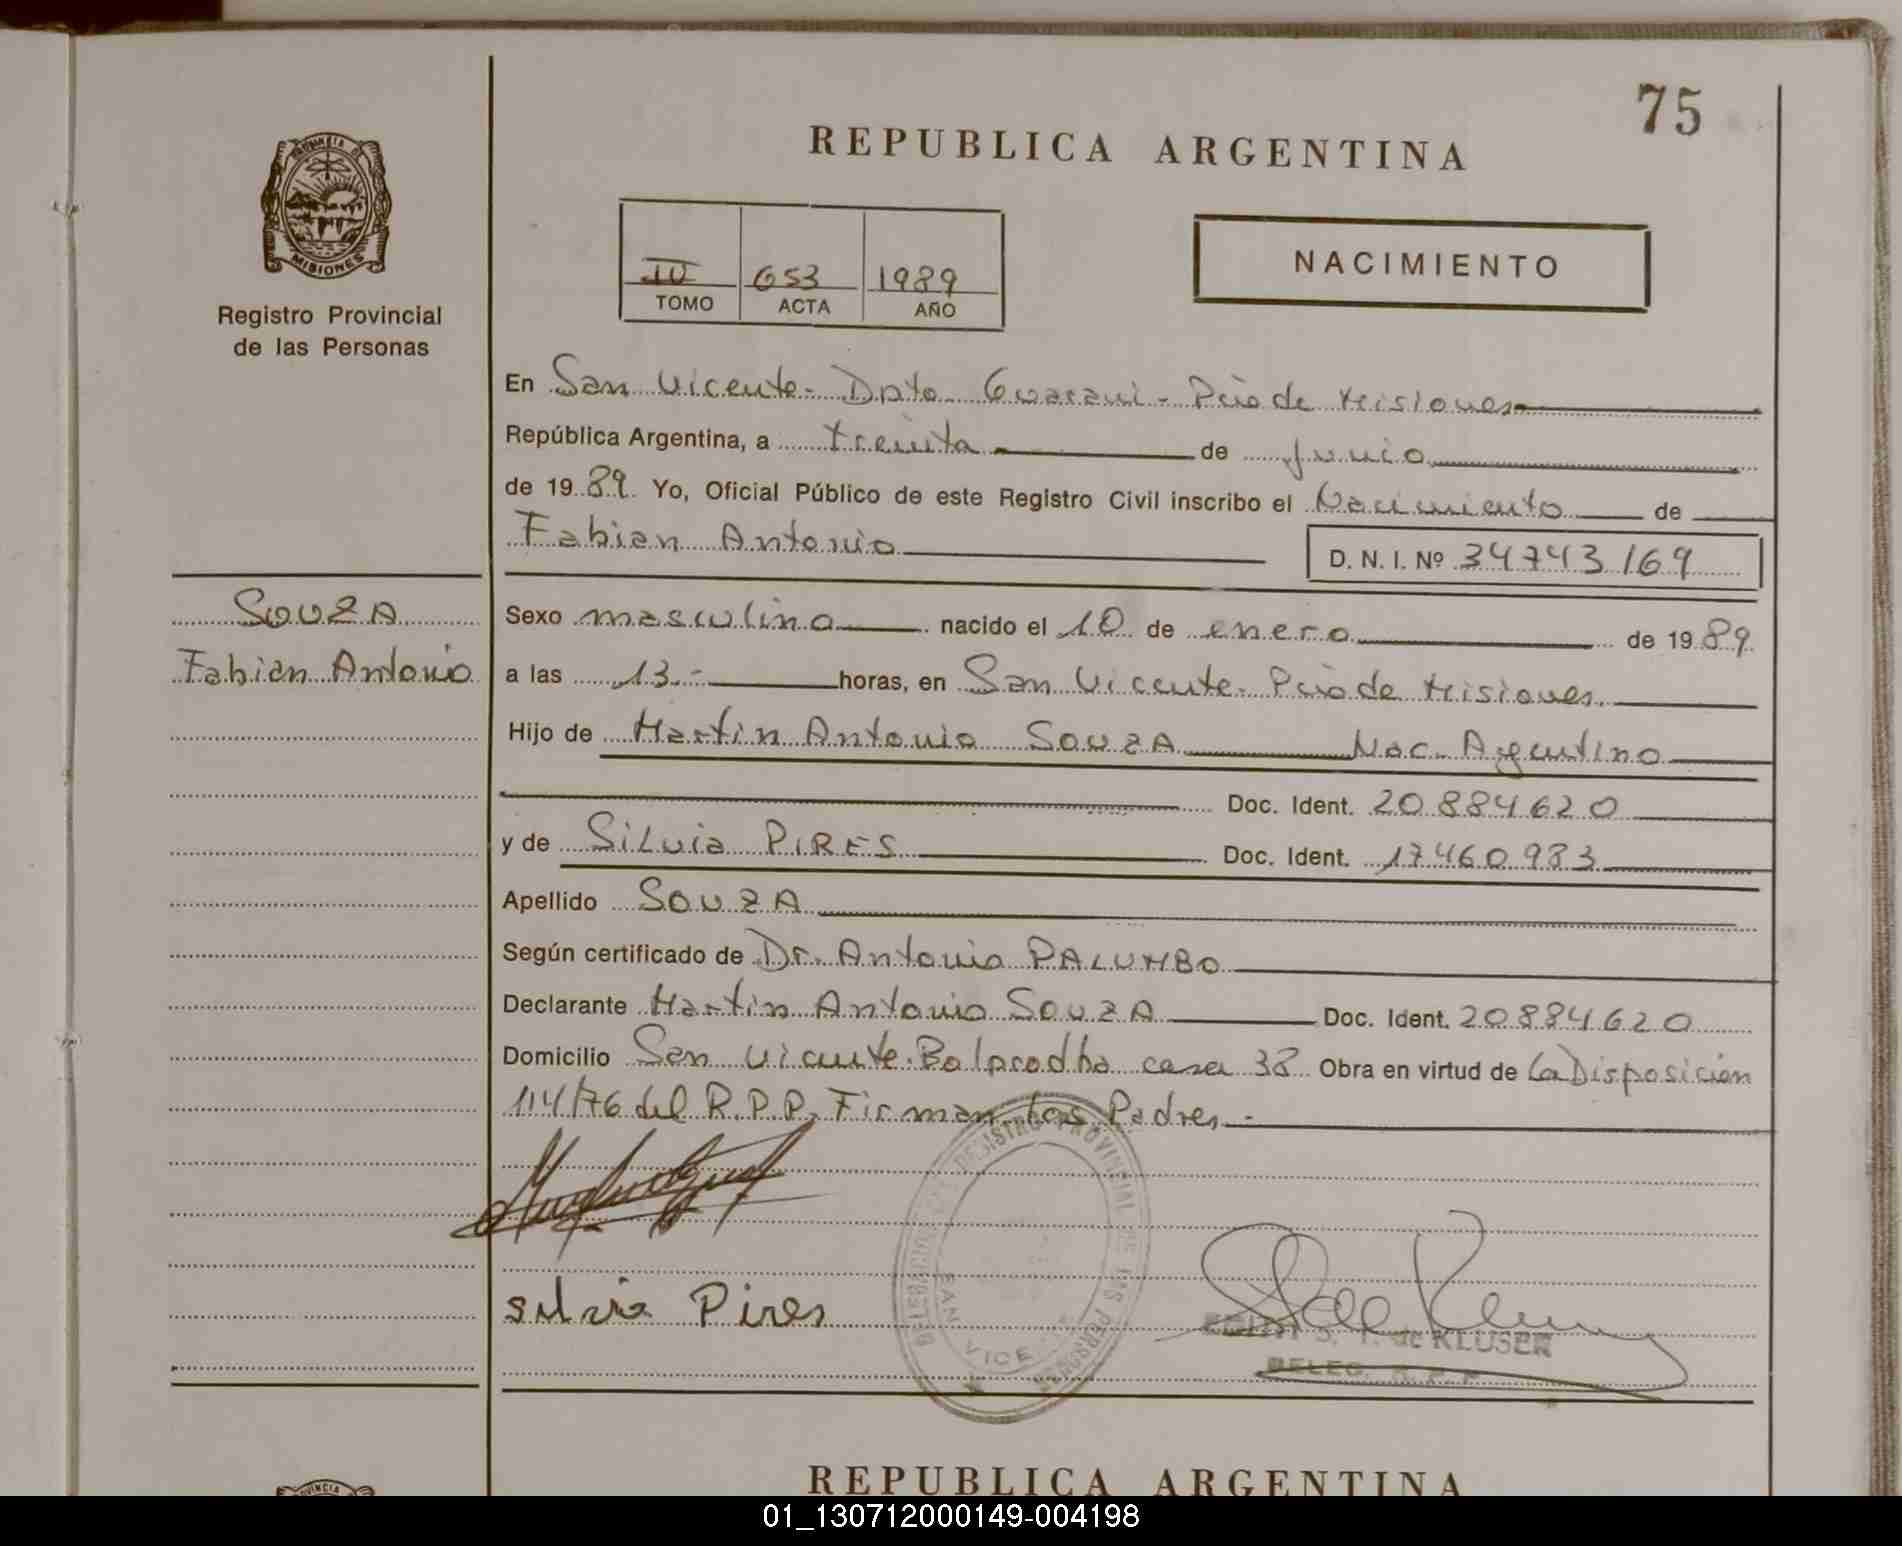 75
REPUBLICA ARGENTINA
PROVINCIA DE
MISIONES
Registro Provincial
de las Personas
IV 653 1989
TOMO ACTA AÑO
NACIMIENTO
En San Vicente - Dpto Guarani - Pcia de Misiones
República Argentina, a treinta de Junio
de 1989 Yo, Oficial Público de este Registro Civil inscribo el Nacimiento de
Fabian Antonio D. N. I. Nº 34743169
SOUZA
Fabian Antonio
Sexo masculino nacido el 10 de enero de 1989
a las 13.- horas, en San Vicente. Pcia de Misiones.
Hijo de Martin Antonio SOUZA Nac. Argentino
Doc. Ident. 20884620
y de SiLvia PIRES Doc. Ident. 17460983
Apellido SOUZA
Según certificado de Dr. Antonio PALUMBO
Declarante Martin Antonio SOUZA Doc. Ident. 20884620
Domicilio San Vicente. casa 38 Obra en virtud de la Disposicion
114/76 del R.P.P. Firman los Padres.-
Silvia Pires
DELEGACION REGISTRO PROVINCIAL DE LAS PERSONAS
SAN VICENTE
S. T. de KLUSER
DELEG. R. P. P.
REPUBLICA ARGENTINA
01_130712000149-004198